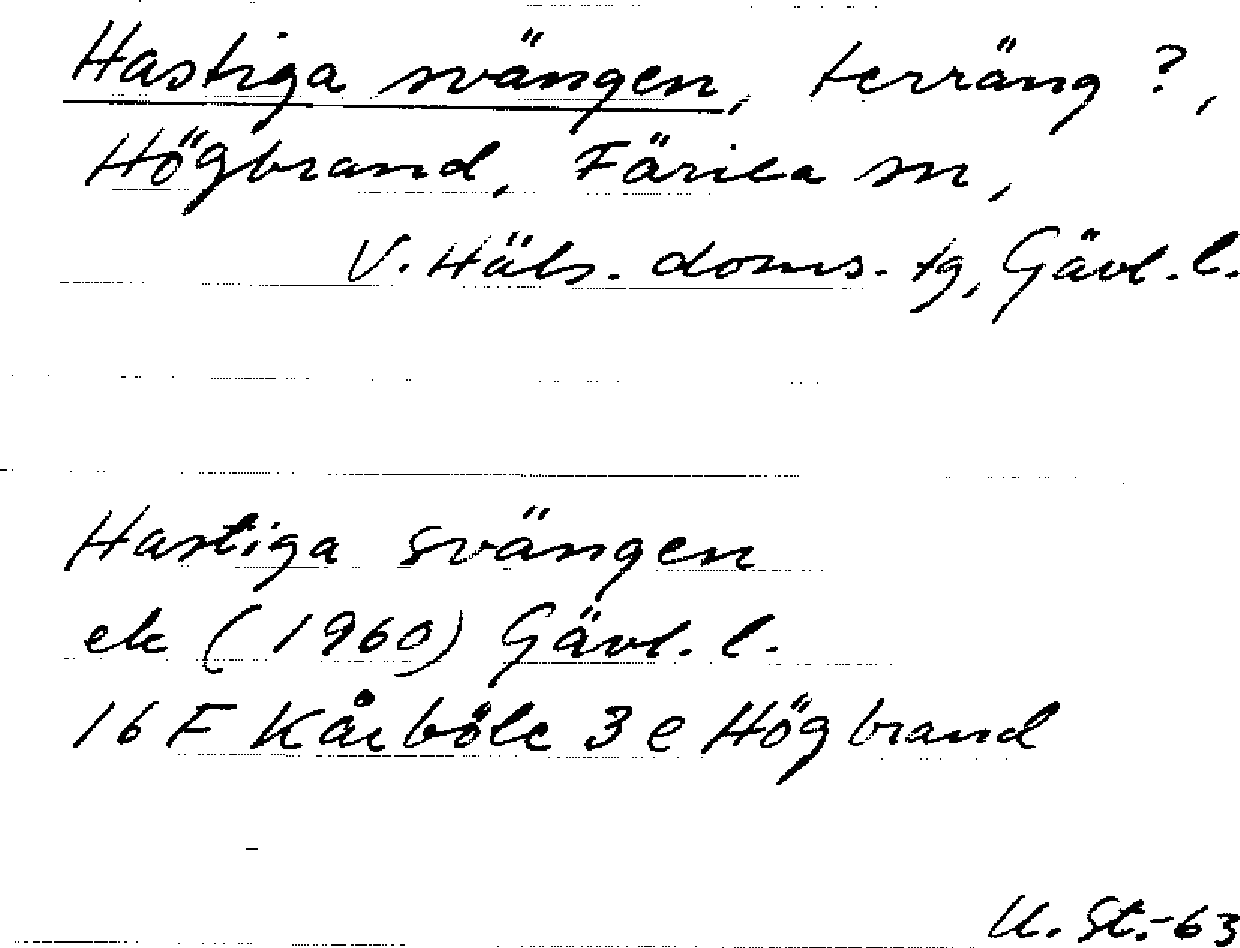 Hastiga svängen, terräng ?,
Högbrand, Färila sn,
V. Häls. doms. tg, Gävl. l.
Hastiga svängen
ek (1960) Gävl. l.
16 F Kårböle 3 e Högbrand
U. St.-63